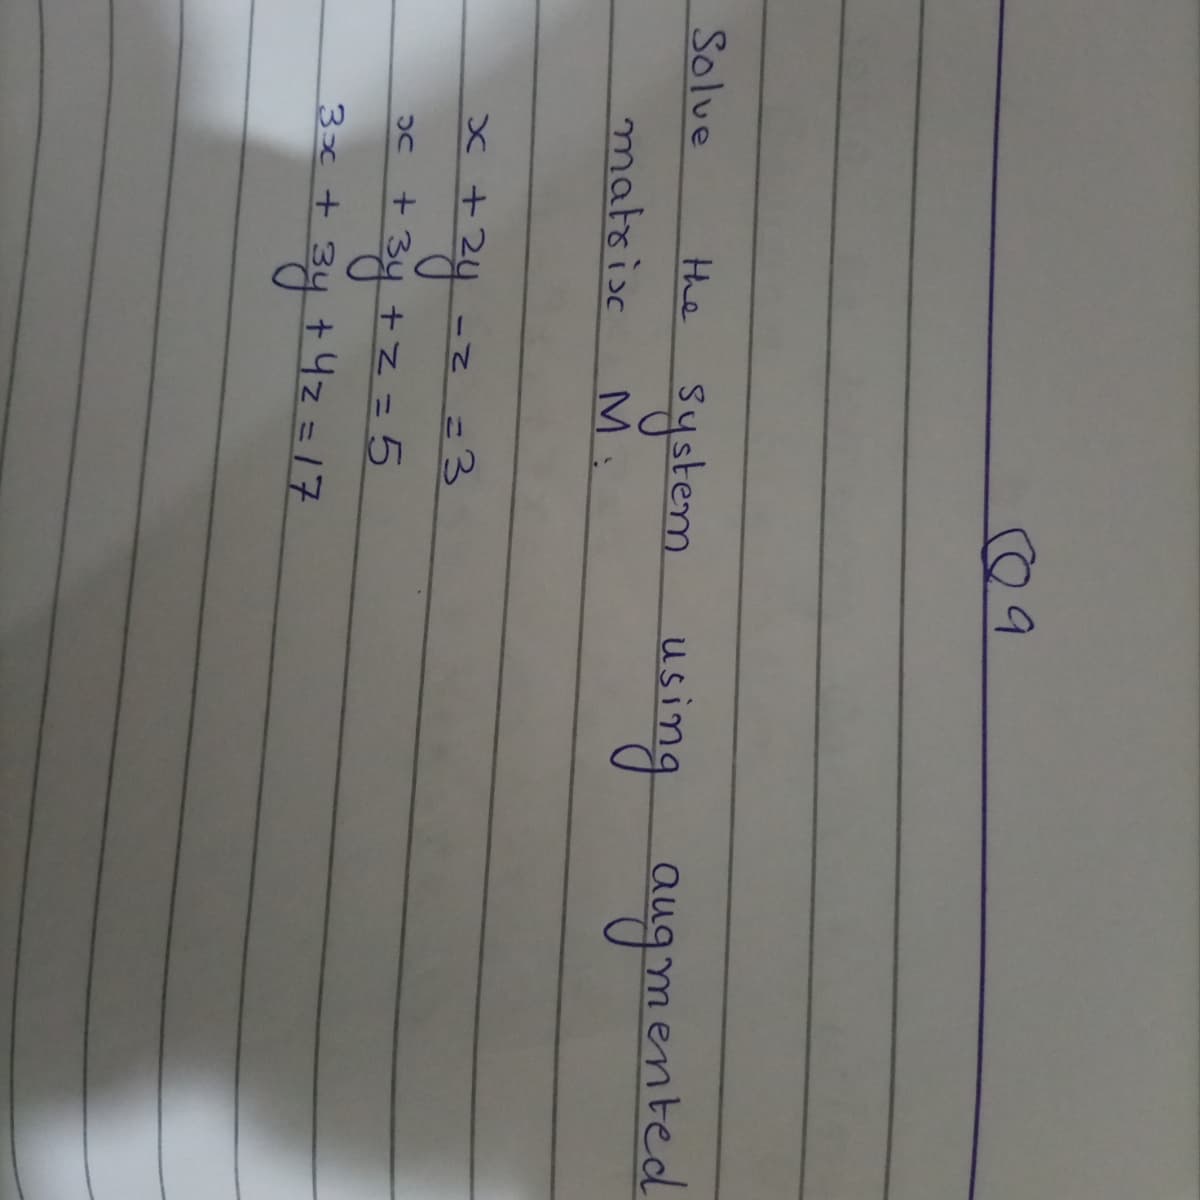 Q9
Solve the system using augmented
matrix M:
x + 2y - z = 3
x + 3y + z = 5
3x + 3y + 4z = 17